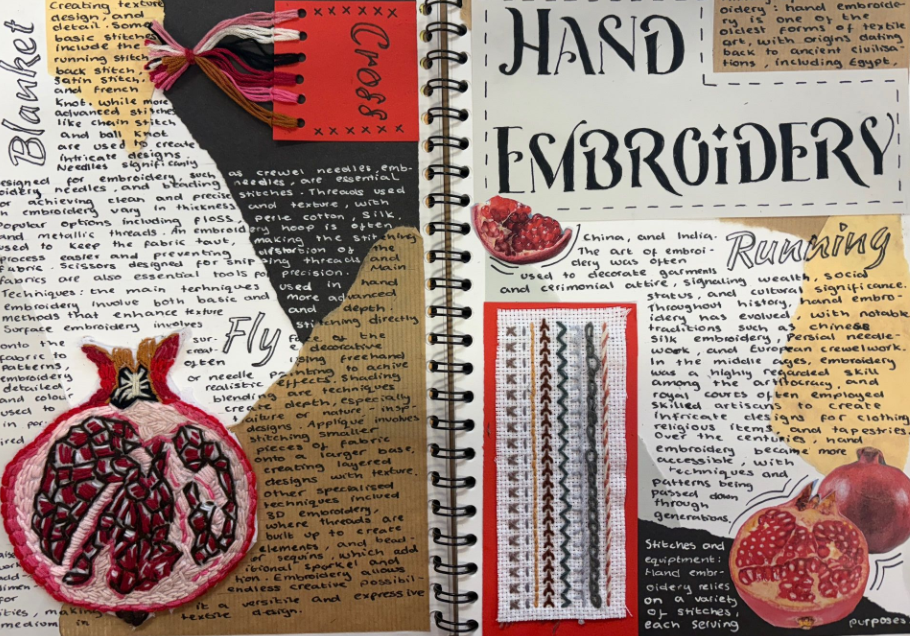 Blanket
Creating texture
design, and
detail. Some
basic stitches
include the
running stitch
back stitch,
satin stitch.
and french
knot. while more
advanced stitches
like chain stitch
and ball knot
are used to create
intricate designs.
Needles significantly
designed for embroidery, such as crewel needles, emb-
oidery needles, and beading needles, are essential
for achieving clean and precise stitches. Threads used
in embroidery vary in thickness and texture, with
Popular options including floss, perle cotton, silk,
and metallic threads. An embroidery hoop is often
used to keep the fabric taut, making the stitching
process easier and preventing distortion of the
Fabric. Scissors designed for snipping threads and
fabrics are also essential tools for precision. Main
Techniques: the main techniques used in hand
embroidery involve both basic and more advanced
methods that enhance texture and depth.
Surface embroidery involves stitching directly
onto the surface of the
fabric to creat- e decorative
patterns, often using freehand
embroidery or needle painting to achive
detailed, realistic effects. Shading
and colour blending are techniques
used to create depth, especially
in por- ailure or nature - insp-
ired designs. Applique involves
stitching smaller
pieces of fabric
onto a larger base,
creating layered
designs with texture.
Other specialised
techniques includ
3D embroidery,
where threads are
built up to create
elements, and bead
or sequins, which add
itional sparkel and
tion. Embroidery allows
for endless creative possibil-
ities, making it a versitile and expressive
medium in textile design.
Cross
Fly
HAND
EMBROIDERY
oidery: hand embroide-
ry is one of the
oldest forms of textile
art, with origins dating
back to ancient civilisa-
tions, including Egypt,
China, and India.
The art of embroi-
dery was often
used to decorate garments
and cerimonial attire, signaling wealth, social
status, and cultural significance.
Throughout history, hand embro-
idery has evolved, with notable
traditions such as chinese
silk embroidery, Persian needle-
work, and European crewelwork.
In the middle ages, embroidery
was a highly regarded skill
among the aristocracy, and
royal courts often employed
skilled artisans to create
intricate designs for clothing
religious items, and tapestries.
Over the centuries, hand
embroidery became more
accessible, with
techniques and
patterns being
passed down
through
generations.
Running
Stitches and
equiptment:
Hand embr-
oidery relies
on a variety
of stitches,
each serving purposes